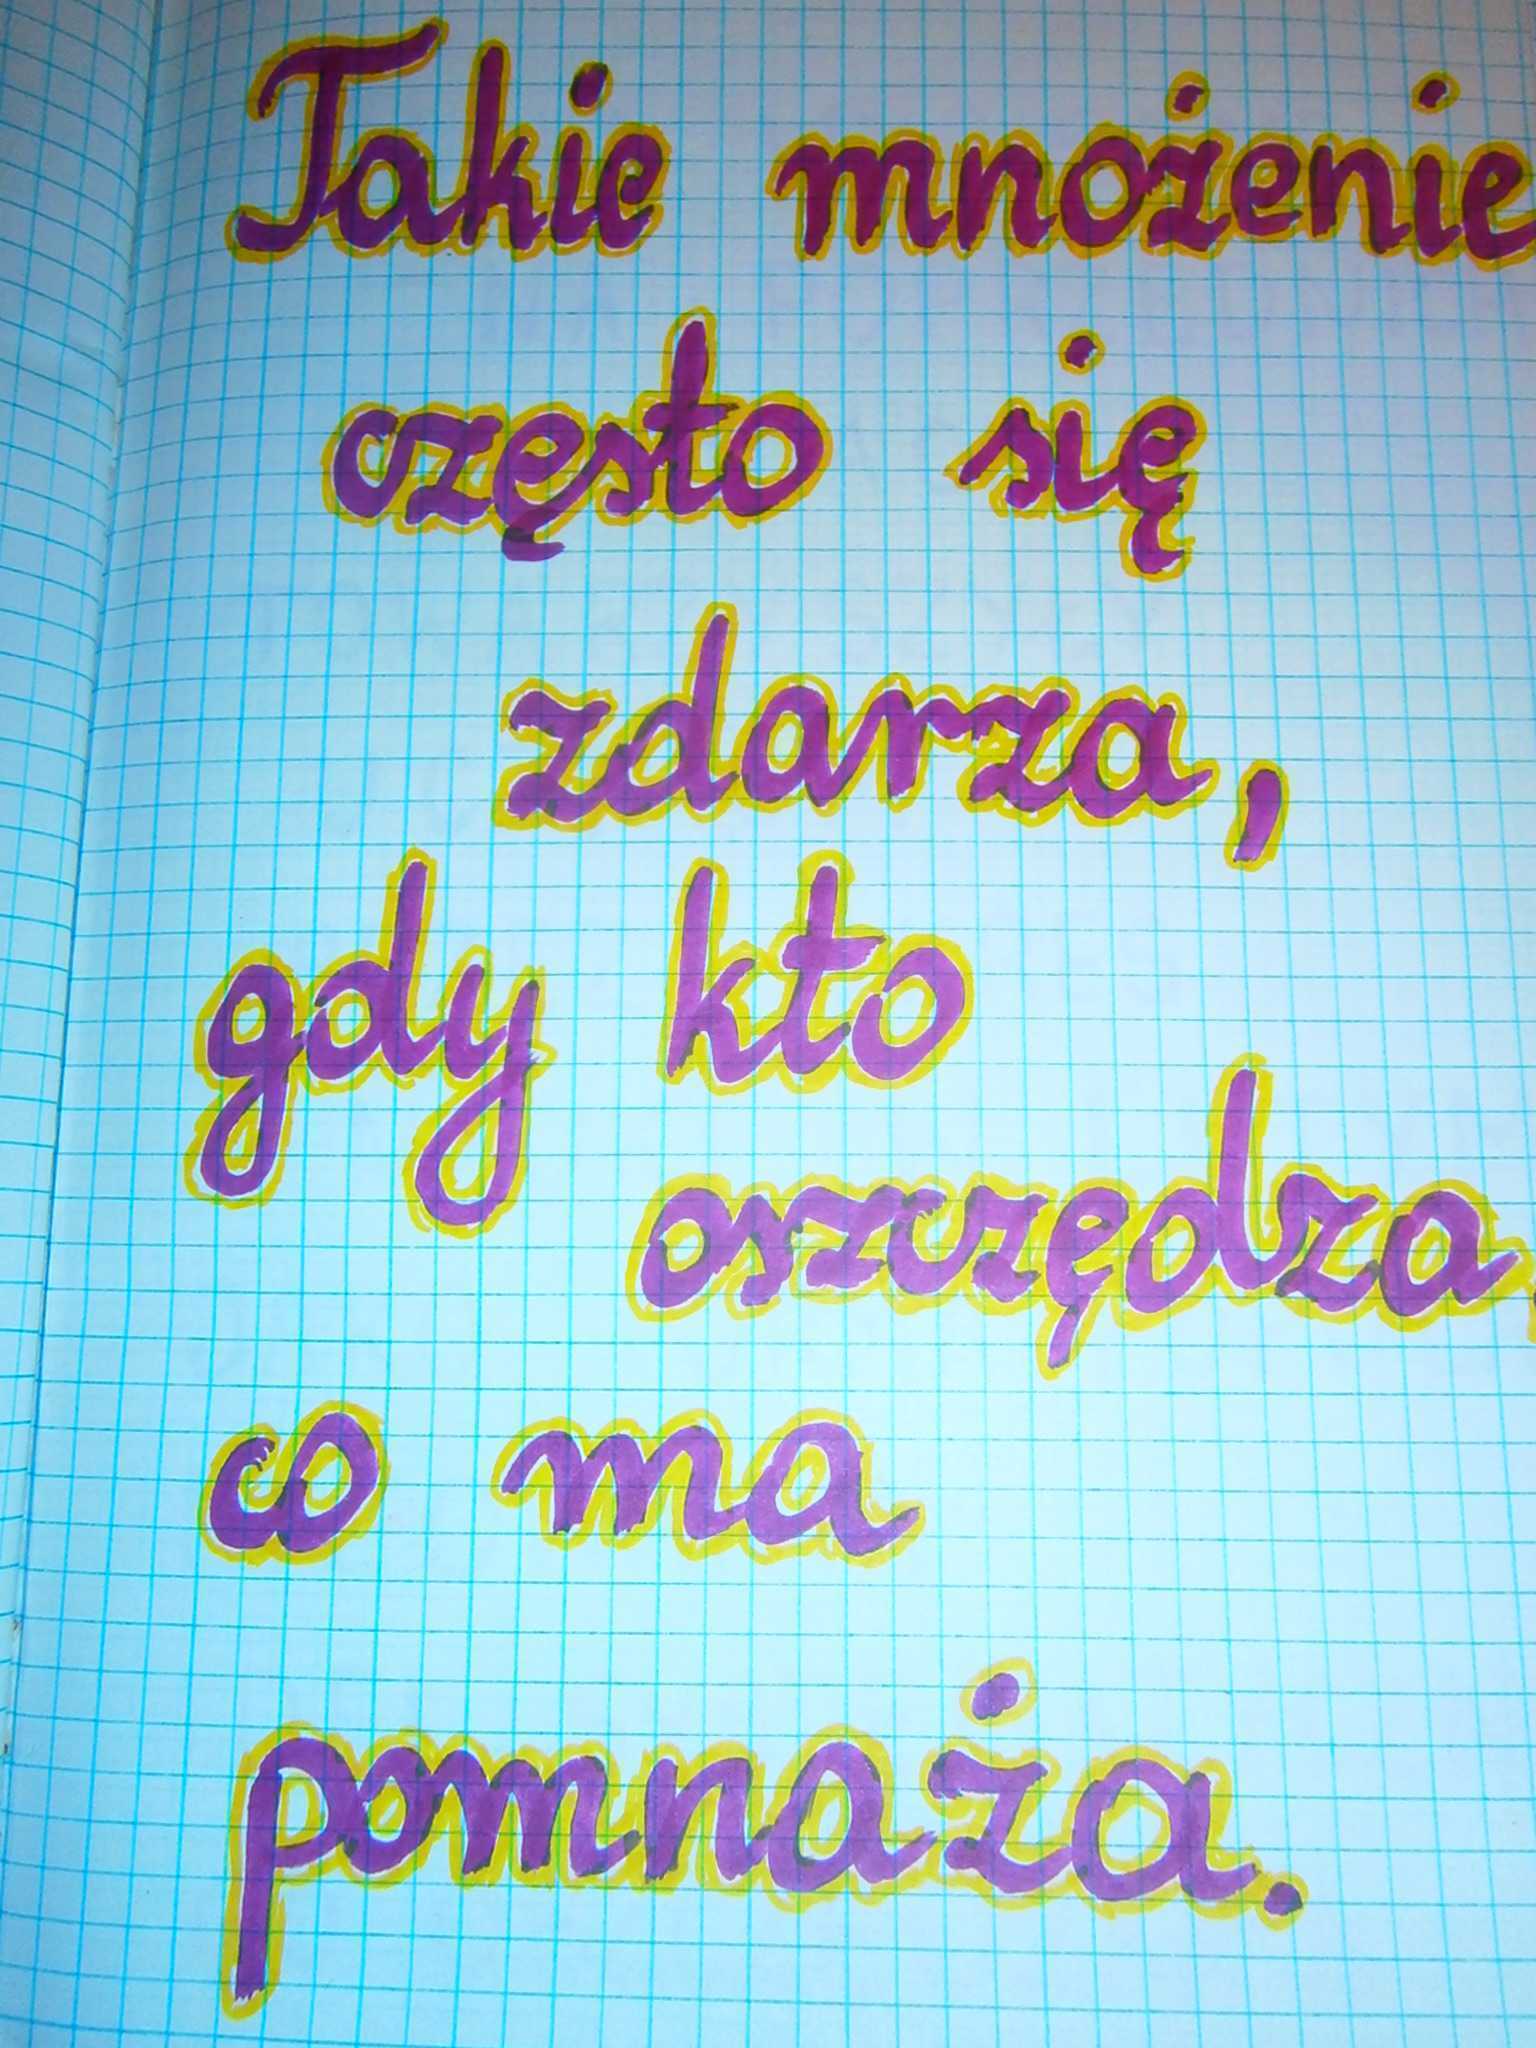 Takie mnożenie
często się
zdarza,
gdy kto
oszczędza,
co ma
pomnaża.